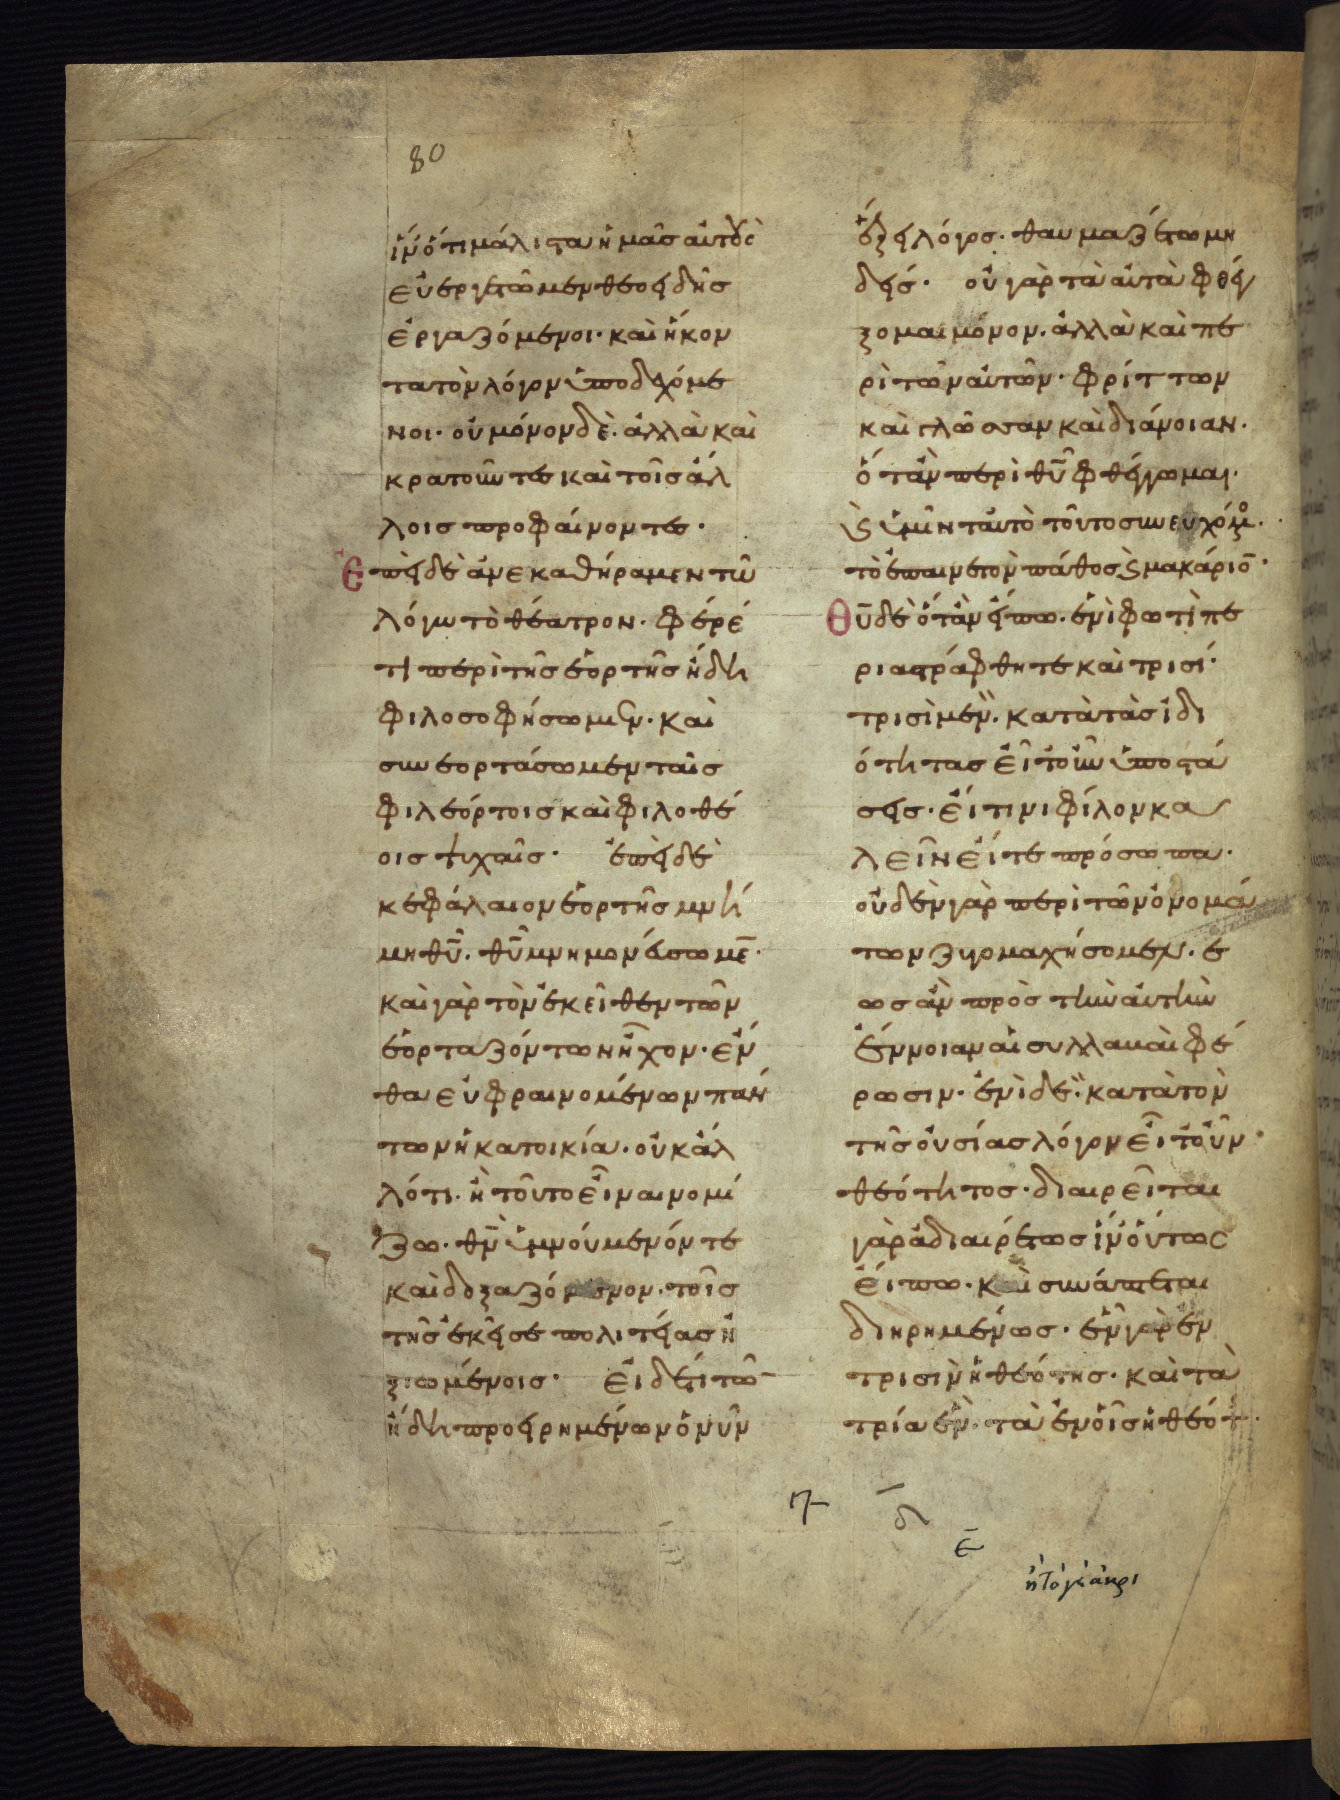 80
ἵν' ὅτι μάλιστα ἡμᾶς αὐτοὺς
εὐεργετῶμεν θεοειδεῖς
ἐργαζόμενοι· καὶ ἥκον
τα τὸν λόγον ὑποδεχόμε
νοι· οὐ μόνον δὲ· ἀλλὰ καὶ
κρατοῦντες καὶ τοῖς ἄλ
λοις προφαίνοντες·
Ἐπεὶ δὲ ἀνεκαθήραμεν τῶ
λόγω τὸ θέατρον· φέρέ
τι περὶ τῆς ἑορτῆς ἤδη
φιλοσοφήσωμεν· καὶ
συνεορτάσωμεν ταῖς
φιλεόρτοις καὶ φιλοθέ
οις ψυχαῖς· ἐπεὶ δὲ
κεφάλαιον ἑορτῆς μνή
μη θῦ· θῦ μνημονεύσωμε̄·
καὶ γὰρ τὸν ἐκεῖθεν τῶν
ἑορταζόντων ἦχον· ἔν
θα εὐφραινομένων πάν
των ἡ κατοικία· οὐκ ἄλ
λό τι· ἢ τοῦτο εἶναι νομί
ζω· θν̄ ὑμνούμενόν τε
καὶ δοξαζόμενον· τοῖς
τῆς ἐκεῖσε πολιτείας ἠ
ξιωμένοις· εἰ δέ τι τῶ̄
ἤδη προειρημένων ὁ νῦν
ἕξει λόγος· θαυμαζέτω μη
δείς· οὐ γὰρ τὰ αὐτὰ φθέγ
ξομαι μόνον· ἀλλὰ καὶ πε
ρὶ τῶν αὐτῶν· φρίττων
καὶ γλῶσσαν καὶ διάνοιαν·
ὅταν περὶ θῦ φθέγγωμαι·
κ ὑμῖν ταυτὸ τοῦτο συνευχόμο·
τὸ ἐπαινετὸν πάθος κ μακάριο̄·
Θῦ δὲ ὅταν εἴπω· ἑνὶ φωτὶ πε
ριαστράφθητε καὶ τρισί·
τρισὶ μὲν· κατὰ τὰς ἰδι
ότητας εἴτουν ὑποστά
σεις· εἴ τινι φίλον κα
λεῖν εἴτε πρόσωπα·
οὐδὲν γὰρ περὶ τῶν ὀνομά
των ζυγομαχήσομεν· ἕ
ως ἂν πρὸς τὴν αὐτὴν
ἔννοιαν αἱ συλλαβαὶ φέ
ρωσιν· ἑνὶ δὲ· κατὰ τὸν
τῆς οὐσίας λόγον εἴτουν·
θεότητος· διαιρεῖται
γὰρ ἀδιαιρέτως ἵν' οὕτως
εἴπω· καὶ συνάπτεται
διηρημένως· ἓν γὰρ ἐν
τρισὶν ἡ θεότης· καὶ τὰ
τρία ἓν· τὰ ἐν οἷς ἡ θεότ